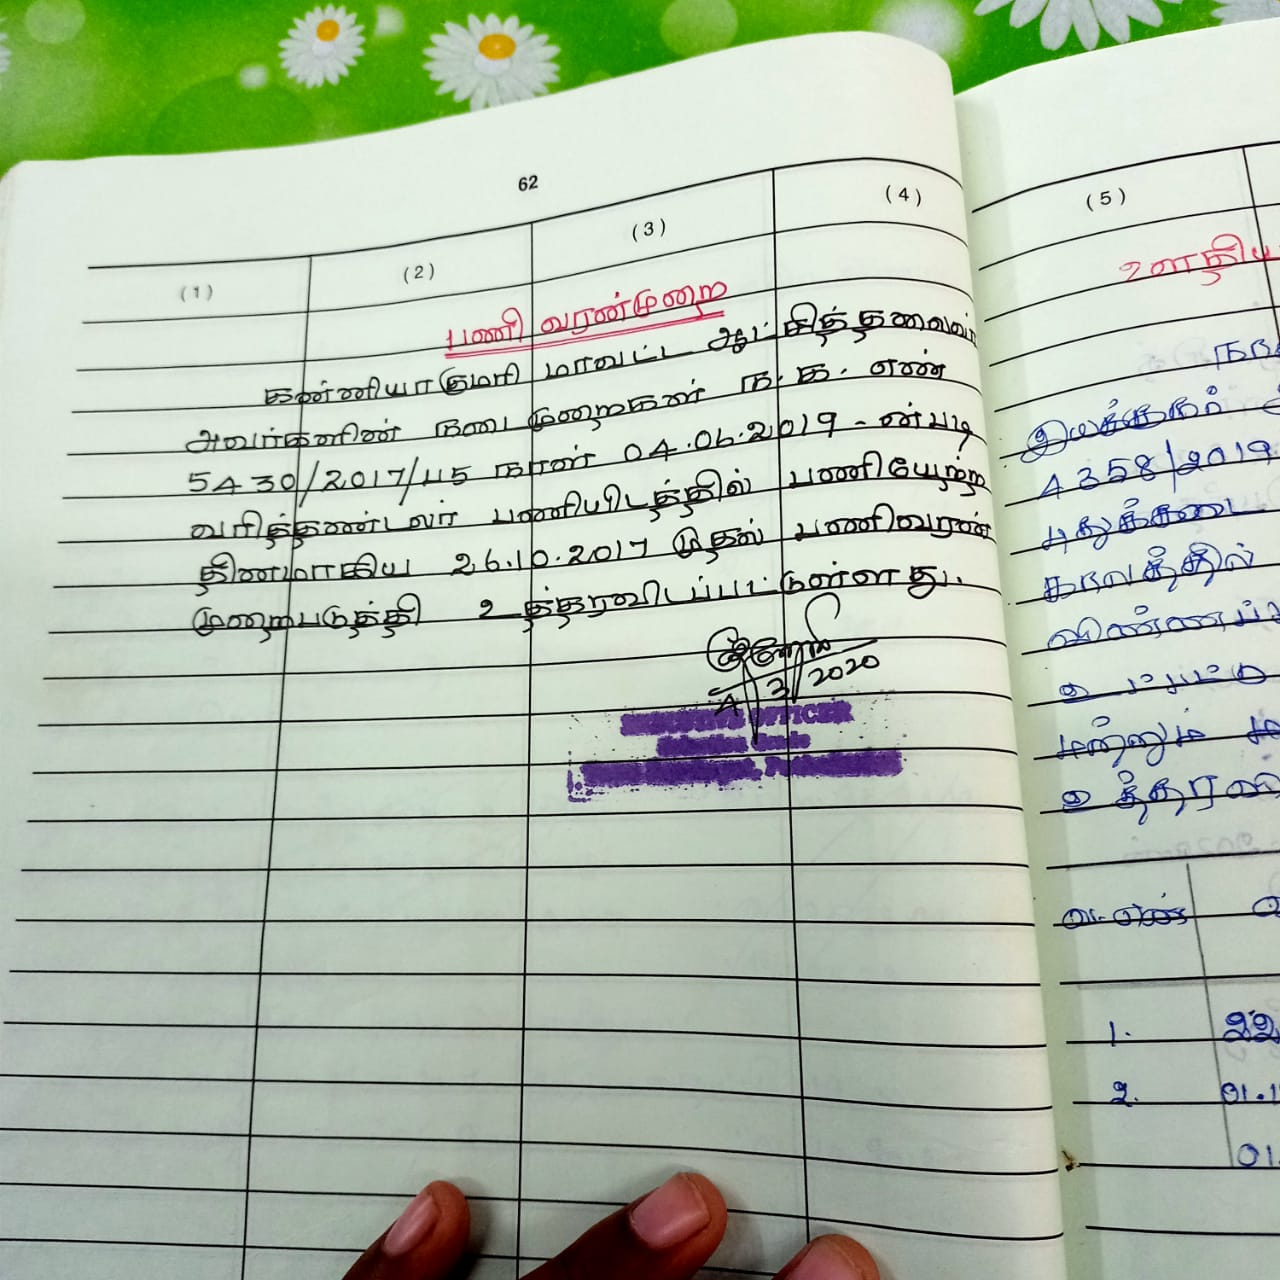 62
(1) (2) (3) (4)
பணி வரன்முறை
கன்னியாகுமரி மாவட்ட ஆட்சித்தலைவர்
அவர்களின் நடைமுறைகள் ந.க. எண்
5430/2017/ப5 நாள் 04.06.2019-ன்படி
வரித்தண்டலர் பணியிடத்தில் பணியேற்ற
தினமாகிய 26.10.2017 முதல் பணிவரன்
முறைபடுத்தி உத்தரவிடப்பட்டுள்ளது.
4/3/2020
EXECUTIVE OFFICER
(5)
4358/2019
புதுக்கடை
உத்தரவி
வ.எண்
1. 22
2. 01.1
01.